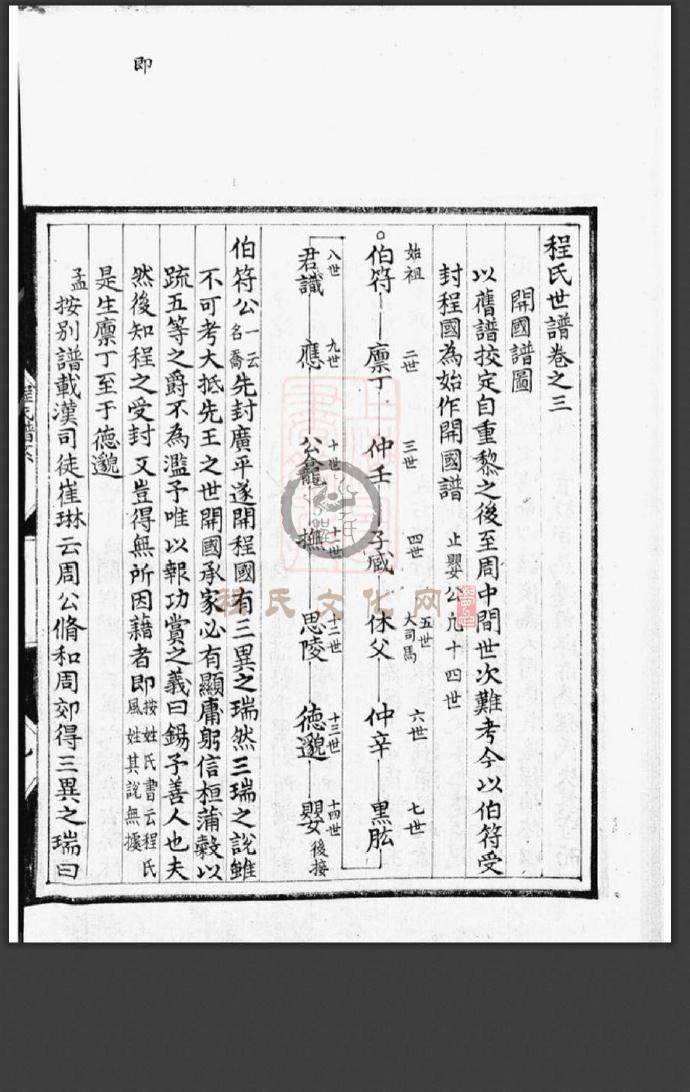 即
程氏世譜卷之三
開國譜圖
以舊譜挍定自重黎之後至周中間世次難考今以伯符受
封程國為始作開國譜 止嬰公凢十四世
始祖 二世 三世 四世 五世 大司馬 六世 七世
伯符 廪丁 仲壬 子威 休父 仲辛 黒肱
八世 九世 十世 十一世 十二世 十三世 十四世
君識 應 公龕 撫 思陵 徳邈 嬰 後接
伯符公 一云名喬 先封廣平遂開程國有三異之瑞然三瑞之說雖
不可考大抵先王之世開國承家必有顯庸躬信桓蒲穀以
疏五等之爵不為濫予唯以報功賞之義曰錫予善人也夫
然後知程之受封又豈得無所因藉者即 按姓氏書云程氏風姓其說無據
是生廪丁至于德邈
孟 按別譜載漢司徒崔琳云周公脩和周郊得三異之瑞曰
程氏譜
程氏文化网